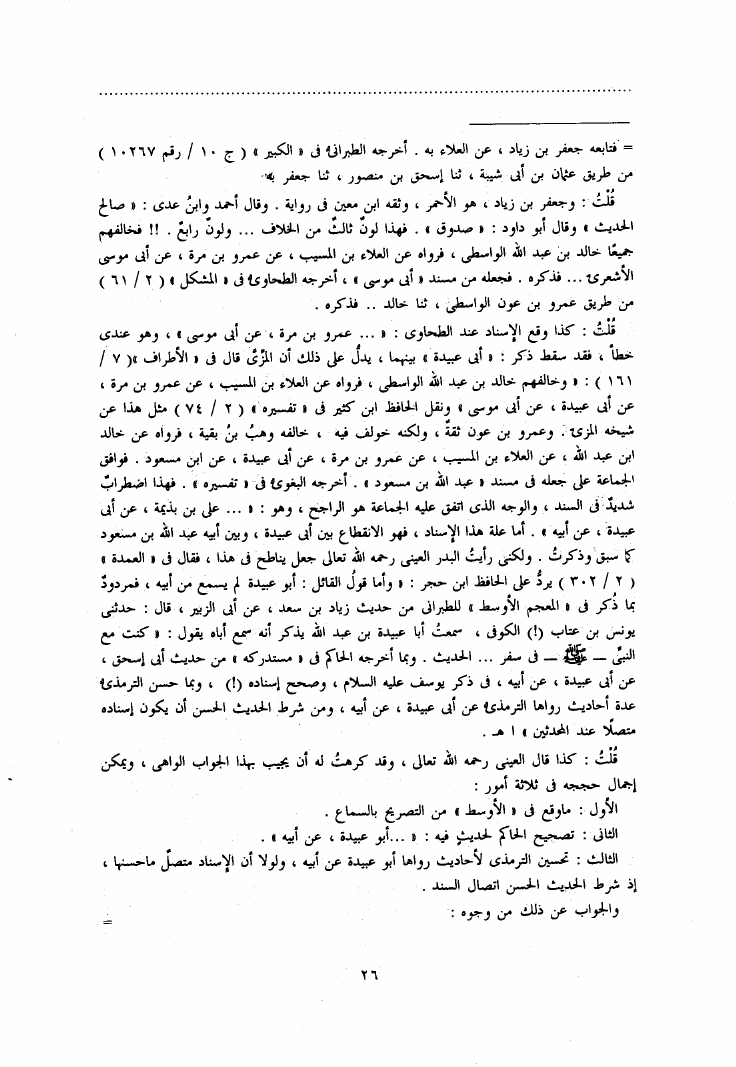 = فتابعه جعفر بن زياد ، عن العلاء به . أخرجه الطبرانىُّ فى « الكبير » ( ج ١٠ / رقم ١٠٢٦٧ )
من طريق عثمان بن أبى شيبة ، ثنا إسحق بن منصور ، ثنا جعفر به .
قُلْتُ : وجعفر بن زياد ، هو الأحمر ، وثقه ابن معين فى رواية . وقال أحمد وابنُ عدى : « صالح
الحديث » وقال أبو داود : « صدوق » . فهذا لونٌ ثالثٌ من الخلاف ... ولونٌ رابعٌ . !! فخالفهم
جميعًا خالد بن عبد الله الواسطى ، فرواه عن العلاء بن المسيب ، عن عمرو بن مرة ، عن أبى موسى
الأشعرىّ ... فذكره . فجعله من مسند « أبى موسى » ، أخرجه الطحاوىُّ فى « المشكل » ( ٢ / ٦١ )
من طريق عمرو بن عون الواسطىّ ، ثنا خالد .. فذكره .
قُلْتُ : كذا وقع الإسناد عند الطحاوى : « ... عمرو بن مرة ، عن أبى موسى » ، وهو عندى
خطأ ، فقد سقط ذكر : « أبى عبيدة » بينهما ، يدلُّ على ذلك أن المزِّىَّ قال فى « الأطراف »( ٧ /
١٦١ ) : « وخالفهم خالد بن عبد الله الواسطى ، فرواه عن العلاء بن المسيب ، عن عمرو بن مرة ،
عن أبى عبيدة ، عن أبى موسى » ونقل الحافظ ابن كثير فى « تفسيره » ( ٢ / ٧٤ ) مثل هذا عن
شيخه المزى . وعمرو بن عون ثقةٌ ، ولكنه خولف فيه ، خالفه وهبُ بنُ بقية ، فرواه عن خالد
ابن عبد الله ، عن العلاء بن المسيب ، عن عمرو بن مرة ، عن أبى عبيدة ، عن ابن مسعود . فوافق
الجماعة على جعله فى مسند « عبد الله بن مسعود » . أخرجه البغوىُّ فى « تفسيره » . فهذا اضطرابٌ
شديدٌ فى السند ، والوجه الذى اتفق عليه الجماعة هو الراجح ، وهو : « ... على بن بذيمة ، عن أبى
عبيدة ، عن أبيه » . أما علة هذا الإسناد ، فهو الانقطاع بين أبى عبيدة ، وبين أبيه عبد الله بن مسعود
كما سبق وذكرتُ . ولكنى رأيتُ البدر العينى رحمه الله تعالى جعل يناطح فى هذا ، فقال فى « العمدة »
( ٢ / ٣٠٢ ) يردُّ على الحافظ ابن حجر : « وأما قولُ القائل : أبو عبيدة لم يسمع من أبيه ، فمردودٌ
بما ذُكر فى « المعجم الأوسط » للطبرانى من حديث زياد بن سعد ، عن أبى الزبير ، قال : حدثنى
يونس بن عتاب (!) الكوفى ، سمعتُ أبا عبيدة بن عبد الله يذكر أنه سمع أباه يقول : « كنت مع
النبىِّ ــ ﷺ ــ فى سفر ... الحديث . وبما أخرجه الحاكم فى « مستدركه » من حديث أبى إسحق ،
عن أبى عبيدة ، عن أبيه ، فى ذكر يوسف عليه السلام ، وصحح إسناده (!) ، وبما حسن الترمذىُّ
عدة أحاديث رواها الترمذىُّ عن أبى عبيدة ، عن أبيه ، ومن شرط الحديث الحسن أن يكون إسناده
متصلًا عند المحدثين » ا هـ .
قُلْتُ : كذا قال العينى رحمه الله تعالى ، وقد كرهتُ له أن يجيب بهذا الجواب الواهى ، ويمكن
إجمال حججه فى ثلاثة أمور :
الأول : ماوقع فى « الأوسط » من التصريح بالسماع .
الثانى : تصحيح الحاكم لحديثٍ فيه : « ...أبو عبيدة ، عن أبيه » .
الثالث : تحسين الترمذى لأحاديث رواها أبو عبيدة عن أبيه ، ولولا أن الإسناد متصلٌ ماحسنها ،
إذ شرط الحديث الحسن اتصال السند .
والجواب عن ذلك من وجوه :
=
٢٦